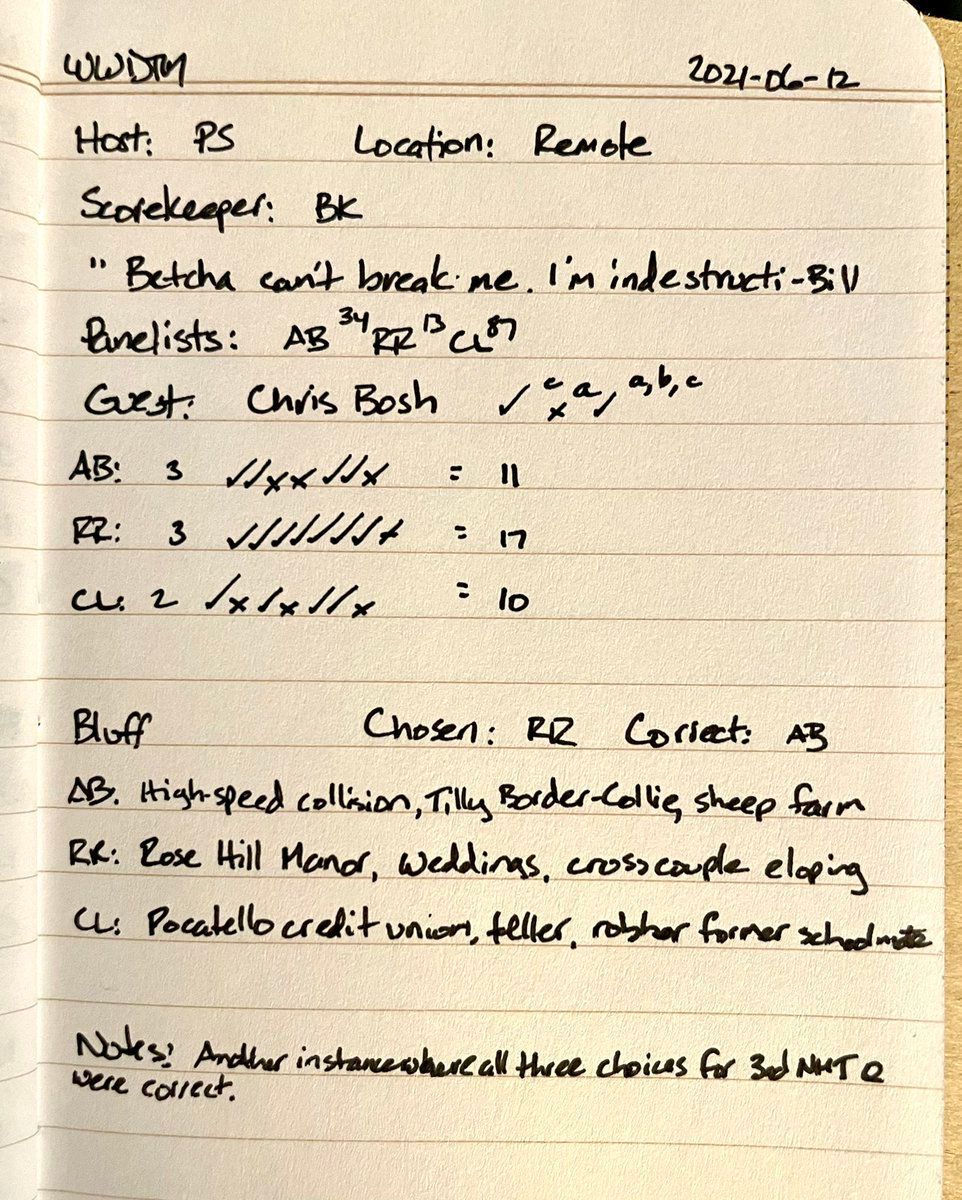 WWDTM 2021-06-12
Host: PS Location: Remote
Scorekeeper: BK
" Betcha can't break me. I'm indestructi-Bill
Panelists: AB 34 RR 13 CL 87
Guest: Chris Bosh ✓ c x a ✓ a, b, c
AB: 3 ✓✓xx✓✓x = 11
RR: 3 ✓✓✓✓✓✓✓x = 17
CL: 2 ✓x✓x✓✓x = 10
Bluff Chosen: RR Correct: AB
AB. High-speed collision, Tilly Border-Collie, sheep farm
RR: Rose Hill Manor, weddings, cross couple eloping
CL: Pocatello credit union, teller, robber former schoolmate
Notes: Another instance where all three choices for 3rd NMT Q
were correct.